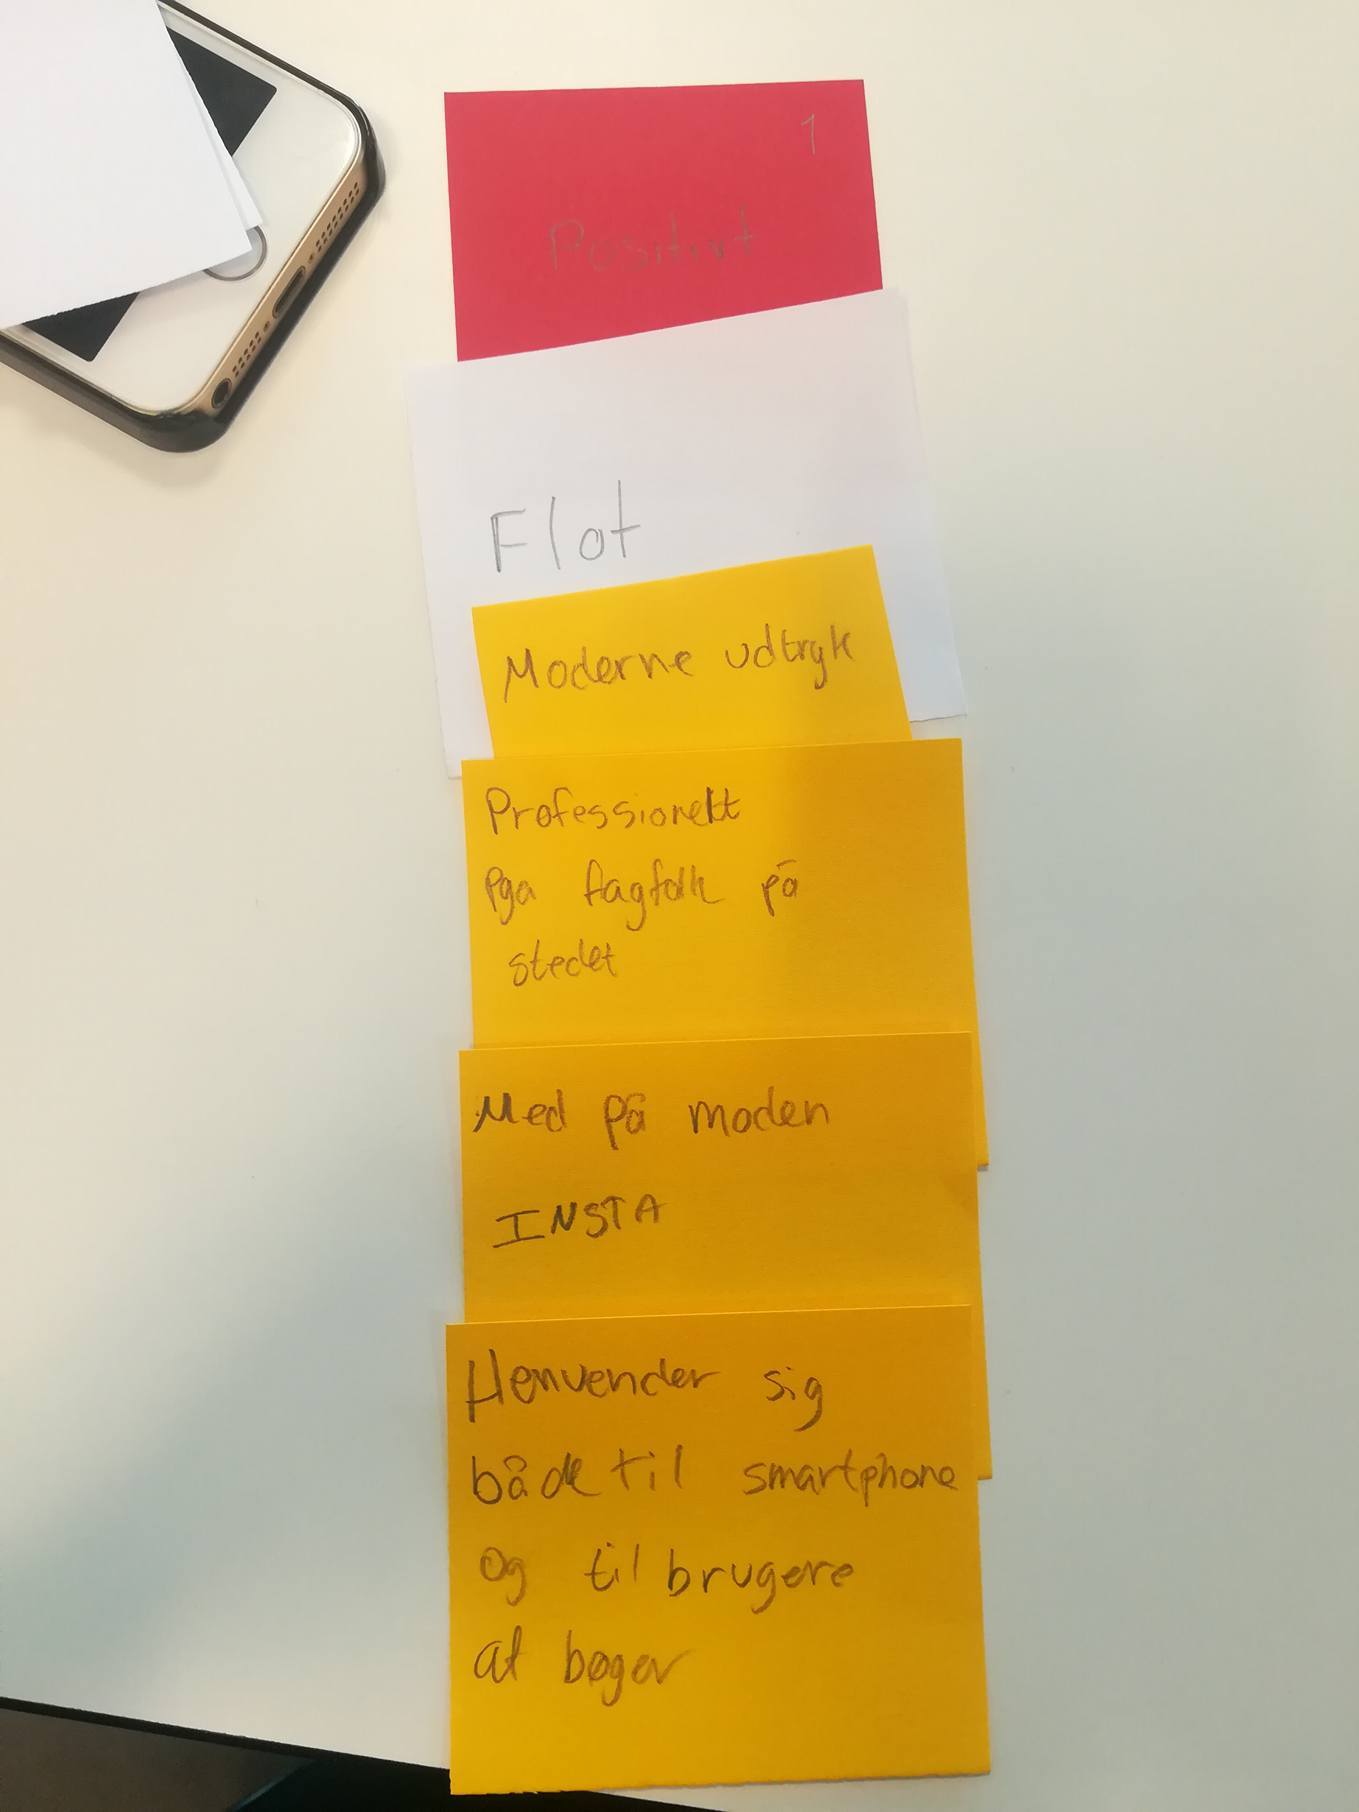 1
Positivt
Flot
Moderne udtryk
Professionelt
Pga fagfolk på
stedet
Med på moden
INSTA
Henvender sig
både til smartphone
og til brugere
af bøger